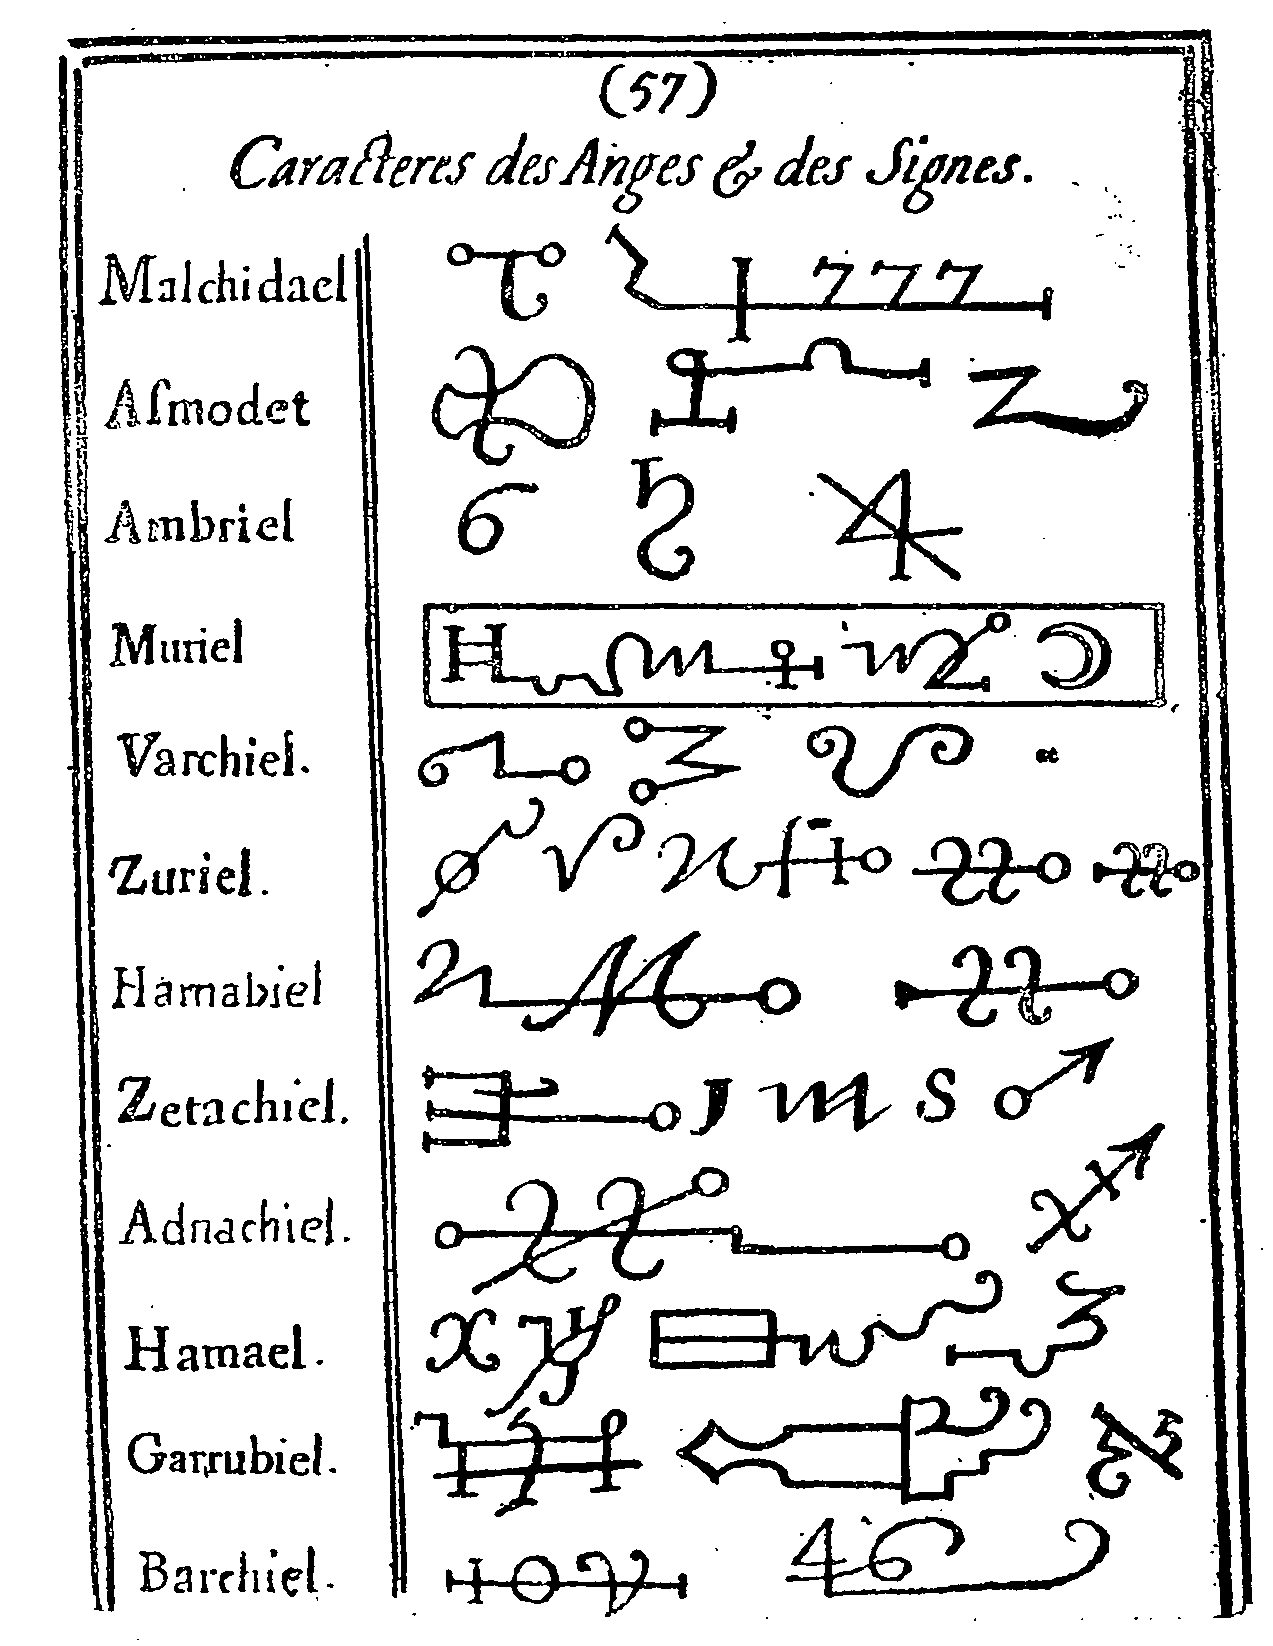 (57)
Caracteres des Anges & des Signes.
Malchidael
Aſmodet
Ambriel
Muriel
Varchiel.
Zuriel.
Hamabiel
Zetachiel.
Adnachiel.
Hamael.
Garrubiel.
Barchiel.